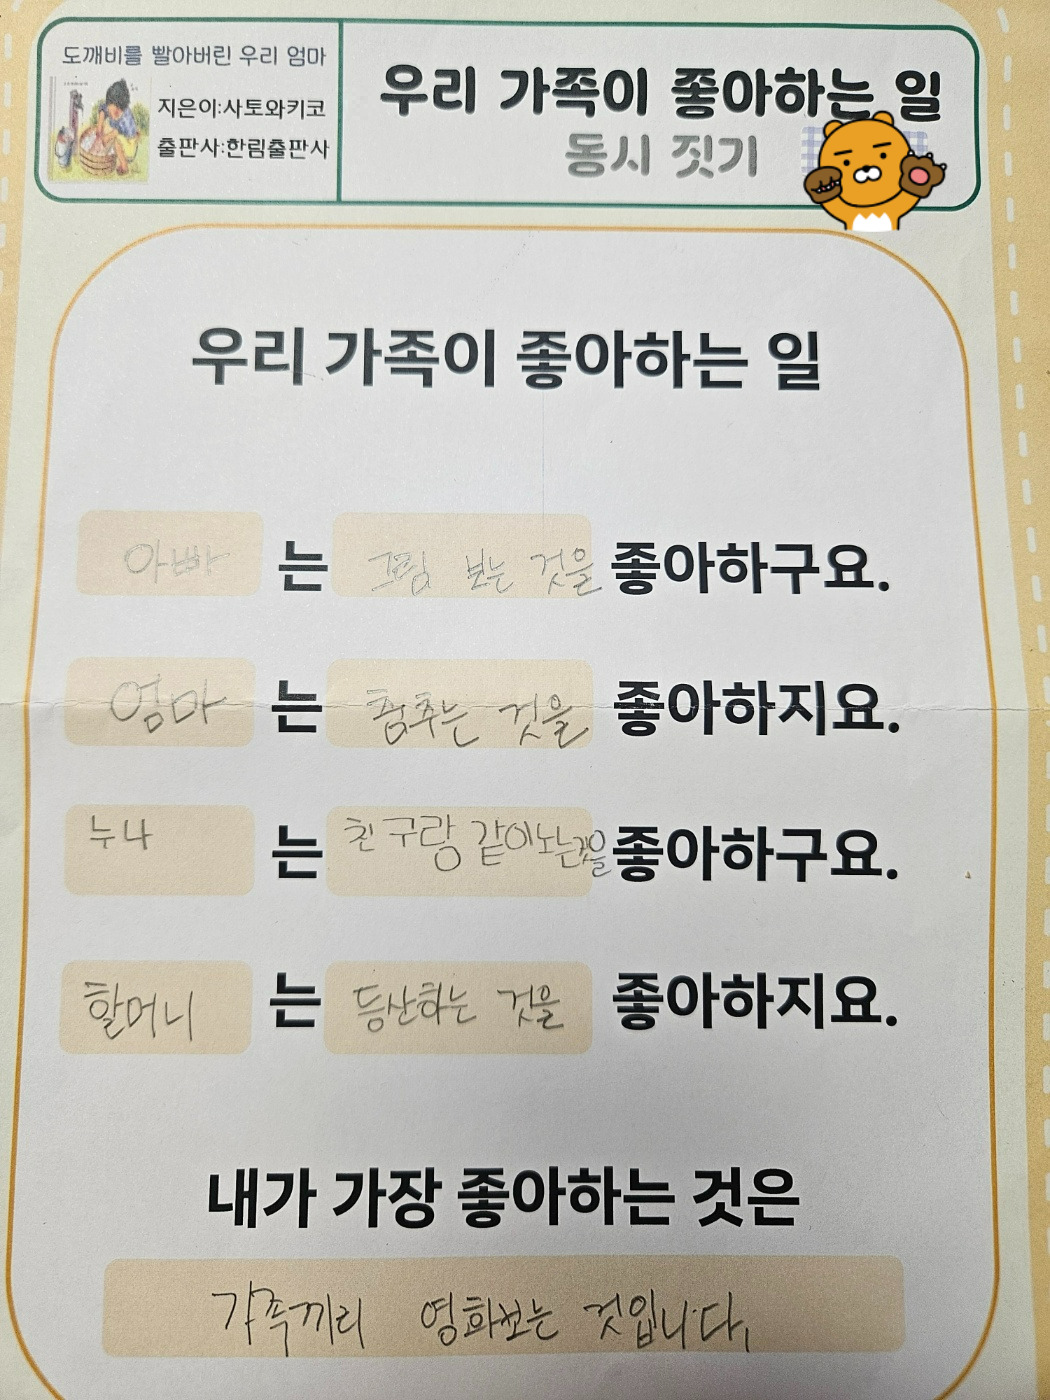 도깨비를 빨아버린 우리 엄마
지은이:사토와키코
출판사:한림출판사
우리 가족이 좋아하는 일
동시 짓기
우리 가족이 좋아하는 일
아빠 는 그림 보는 것을 좋아하구요.
엄마 는 춤추는 것을 좋아하지요.
누나 는 친구랑 같이노는것을 좋아하구요.
할머니 는 등산하는 것을 좋아하지요.
내가 가장 좋아하는 것은
가족끼리 영화보는 것입니다.